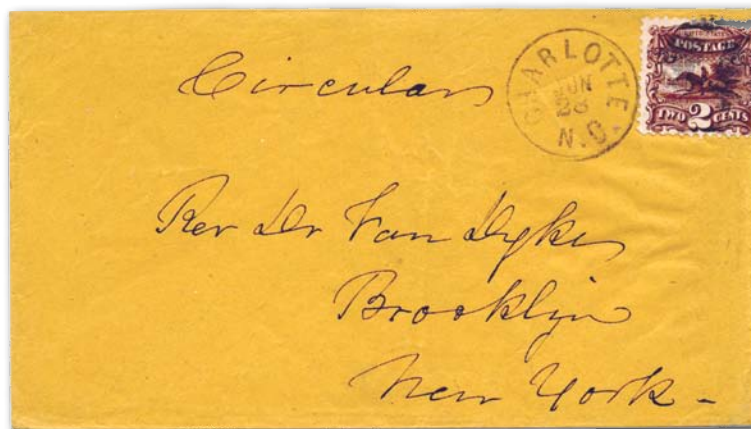 Circular
CHARLOTTE
JUN
28
N.C.
UNITED STATES
POSTAGE
TWO 2 CENTS
Rev Dr Van Dyke
Brooklyn
New York -